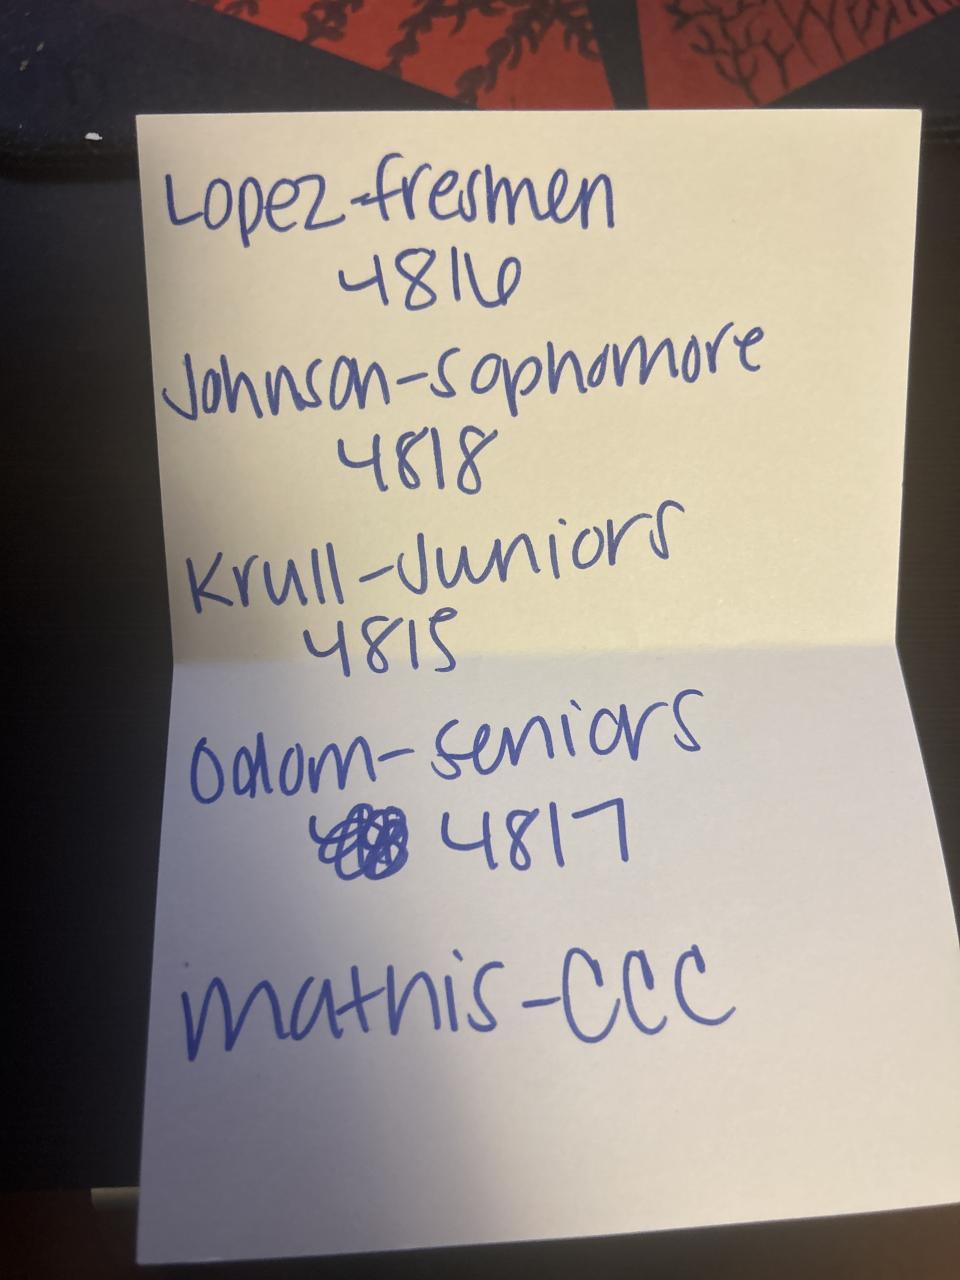 Lopez-fresmen
4816
Johnson-sophomore
4818
Krull-Juniors
4815
Odom-seniors
4817
mathis-CCC